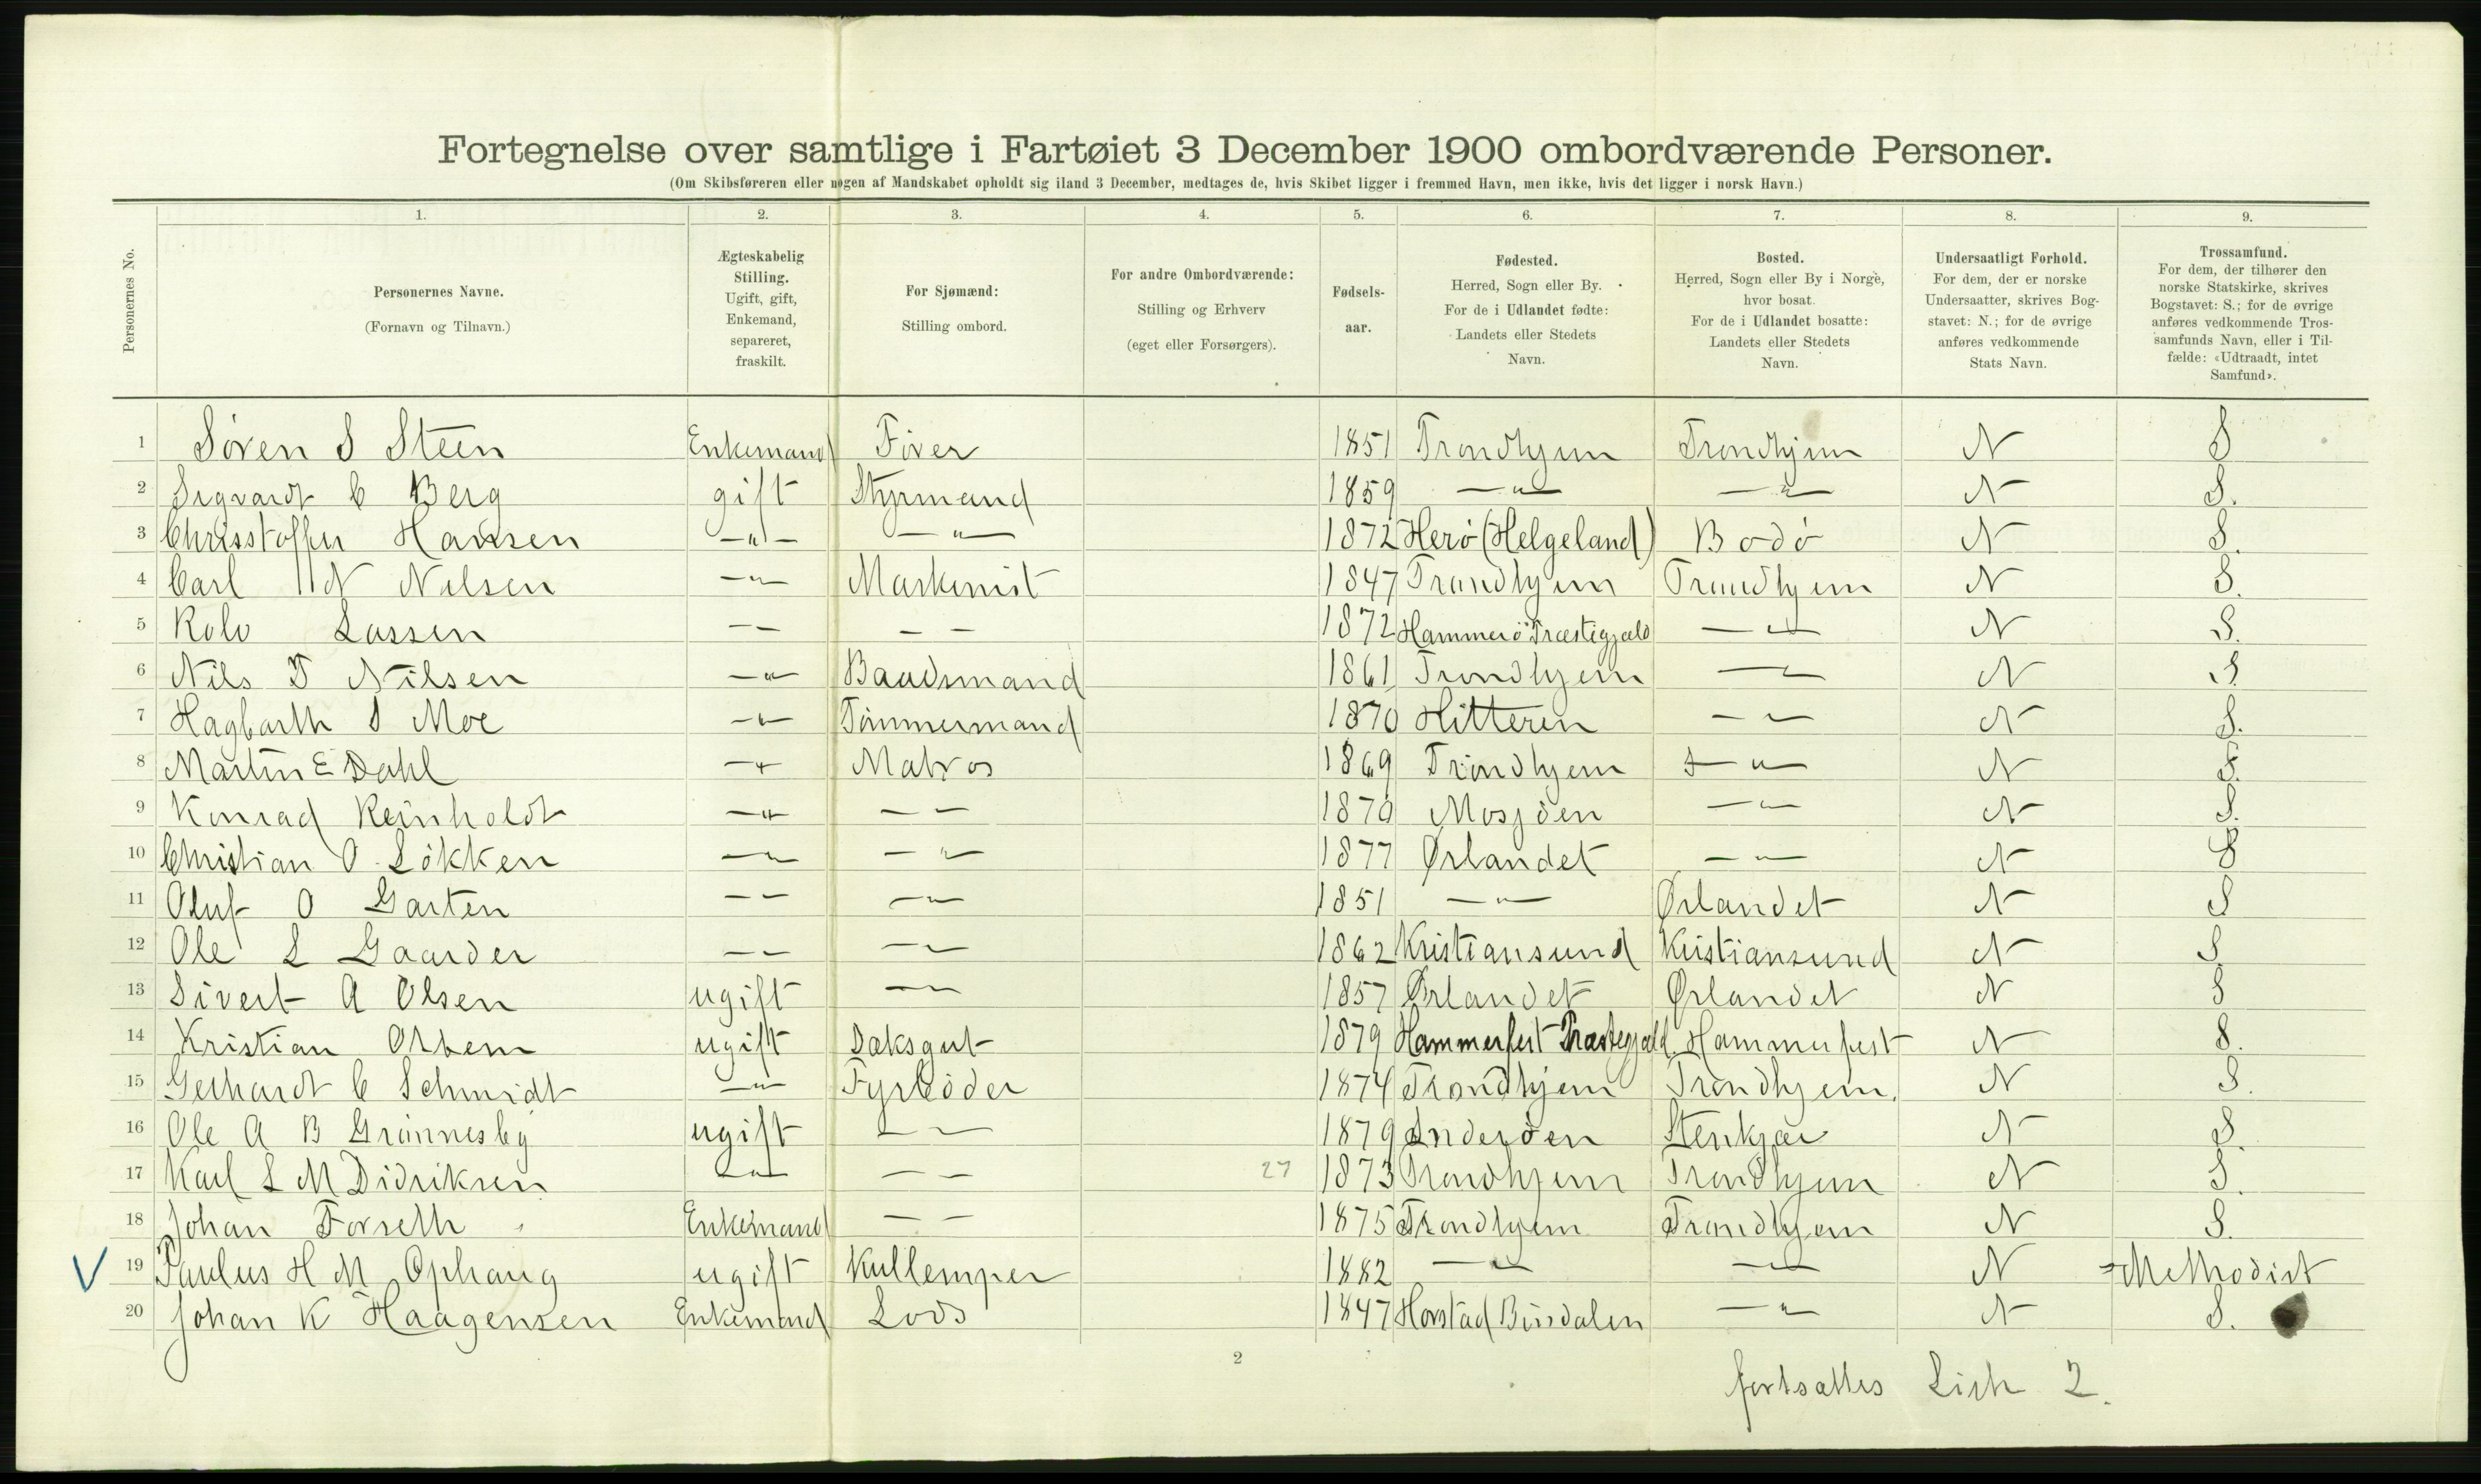 Fortegnelse over samtlige i Fartøiet 3 December 1900 ombordværende Personer.
(Om Skibsføreren eller nogen af Mandskabet opholdt sig iland 3 December, medtages de, hvis Skibet ligger i fremmed Havn, men ikke, hvis det ligger i norsk Havn.)
Personernes No.
1. 2. 3. 4. 5. 6. 7. 8. 9.
Personernes Navne.
(Fornavn og Tilnavn.)
Ægteskabelig
Stilling.
Ugift, gift,
Enkemand,
separeret,
fraskilt.
For Sjømænd:
Stilling ombord.
For andre Ombordværende:
Stilling og Erhverv
(eget eller Forsørgers).
Fødsels-
aar.
Fødested.
Herred, Sogn eller By.
For de i Udlandet fødte:
Landets eller Stedets
Navn.
Bosted.
Herred, Sogn eller By i Norge,
hvor bosat.
For de i Udlandet bosatte:
Landets eller Stedets
Navn.
Undersaatligt Forhold.
For dem, der er norske
Undersaatter, skrives Bog-
stavet: N.; for de øvrige
anføres vedkommende
Stats Navn.
Trossamfund.
For dem, der tilhører den
norske Statskirke, skrives
Bogstavet: S.; for de øvrige
anføres vedkommende Tros-
samfunds Navn, eller i Til-
fælde: «Udtraadt, intet
Samfund».
1 Sören S Steen Enkemand Förer 1851 Trondhjem Trondhjem N S
2 Sigvardt C Berg gift Styrmand 1859 —"— —"— N S.
3 Chrisstoffer Hansen —"— —"— 1872 Herö (Helgeland) Bodö N S.
4 Carl N Nilsen —"— Maskinist 1847 Trondhjem Trondhjem N S.
5 Rolv Lassen —— —— 1872 Hammerö Præstigjeld —"— N S.
6 Nils T Nilsen —"— Baadsmand 1861 Trondhjem —— N S.
7 Hagbarth S Moe —"— Tömmermand 1870 Hitteren —— N S.
8 Martin E Dahl —"— Matros 1869 Trondhjem —"— N S.
9 Konrad Reinholdt —"— —— 1870 Mosjöen —"— N S.
10 Christian O. Lökken —"— —"— 1877 Ørlandet —— N S
11 Oluf O Garten —— —"— 1851 —"— Ørlandet N S
12 Ole L Gaarder —— —— 1862 Kristiansund Kristiansund N S
13 Sivert A Olsen ugift —— 1857 Ørlandet Ørlandet N S
14 Kristian ugift Daksgut 1879 Hammerfest Præstegjeld Hammerfest N S.
15 Gerhardt C Schmidt —"— Fyrböder 1874 Trondhjem Trondhjem. N S.
16 Ole A B Grönnesby ugift —— 1879 Inderöen Stenkjær N S.
17 Karl L M Didriksen —"— —— 27 1873 Trondhjem Trondhjem N S.
18 Johan Forseth Enkemand —— 1875 Trondhjem Trondhjem N S.
V 19 Paulus H M Ophaug ugift Kullemper 1882 —"— —"— N Methodist
20 Johan K Haagensen Enkemand Lods 1847 Horstad Bindalen —"— N S.
2
fortsattes List 2.